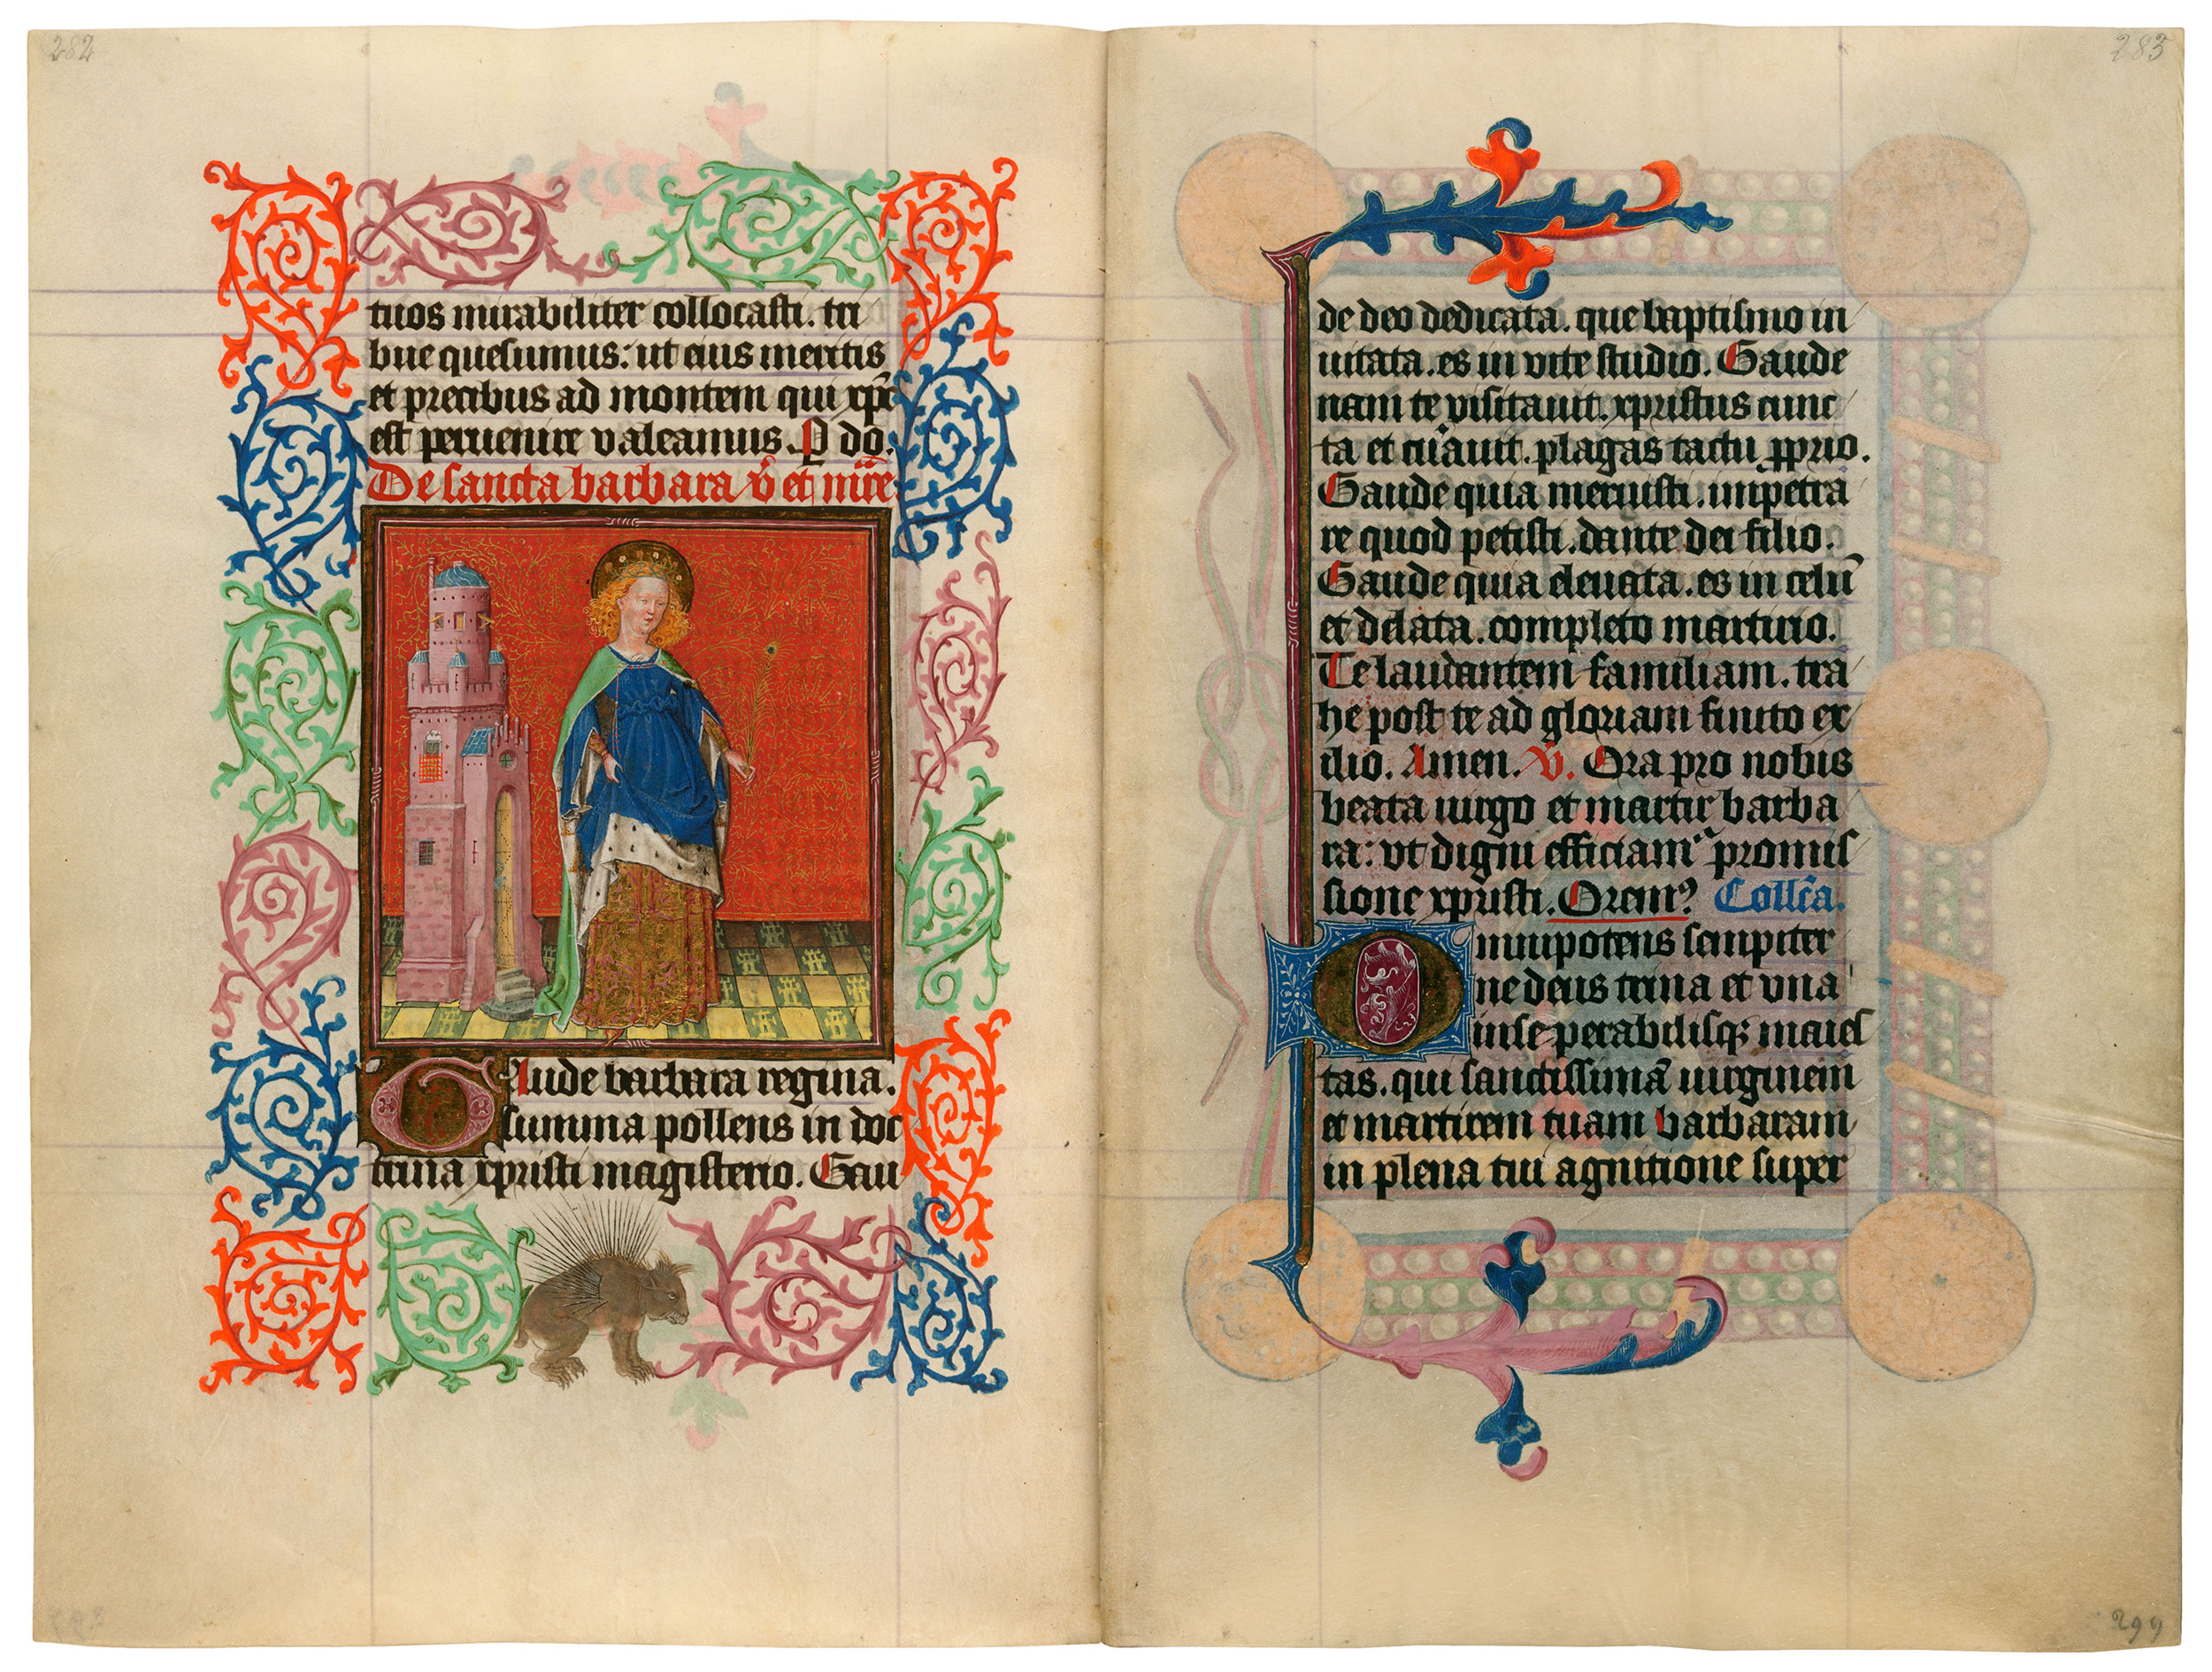 282
tuos mirabiliter collocasti. tri
bue quesumus: ut eius meritis
et precibus ad montem qui xp̄c
est peruenire valeamus. P do.
De sancta barbara v̄ et mr̄e
Gaude barbara regina.
summa pollens in doc
trina xpristi magisterio. Gau
283
de deo dedicata. que baptismo in
uitata. es in vite studio. Gaude
nam te visitauit. xpristus cunc
ta et cu᷑auit. plagas tactu ꝓprio.
Gaude quia meruisti. impetra
re quod petisti. dante dei filio.
Gaude quia eleuata. es in celū
et delata. completo martirio.
Te laudantem familiam. tra
he post te ad gloriam finito ex
ilio. Amen. v̄. Ora pro nobis
beata uirgo et martir barba
ra: vt digni efficiam᷑ promis
sione xpristi. Oremꝰ Coll̄ca.
Omnipotens sempiter
ne deus trina et vna
inseperabilisqꝫ maies
tas. qui sanctissimā uirginem
et martirem tuam barbaram
in plena tui agnitione super
299